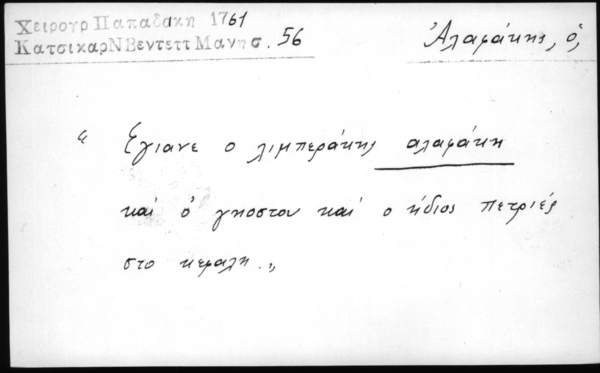 Χειρογρ Παπαδακη 1761
Κατσικαρ Ν Βεντεττ Μανησ. 56
Ἀλαμάκης, ὁ,
" Ἐγιανε ο λιμπεράκης αλαμάκη
καί ὁ γκοστον καί ο ήδιος πετριές
στο κεφαλη. „